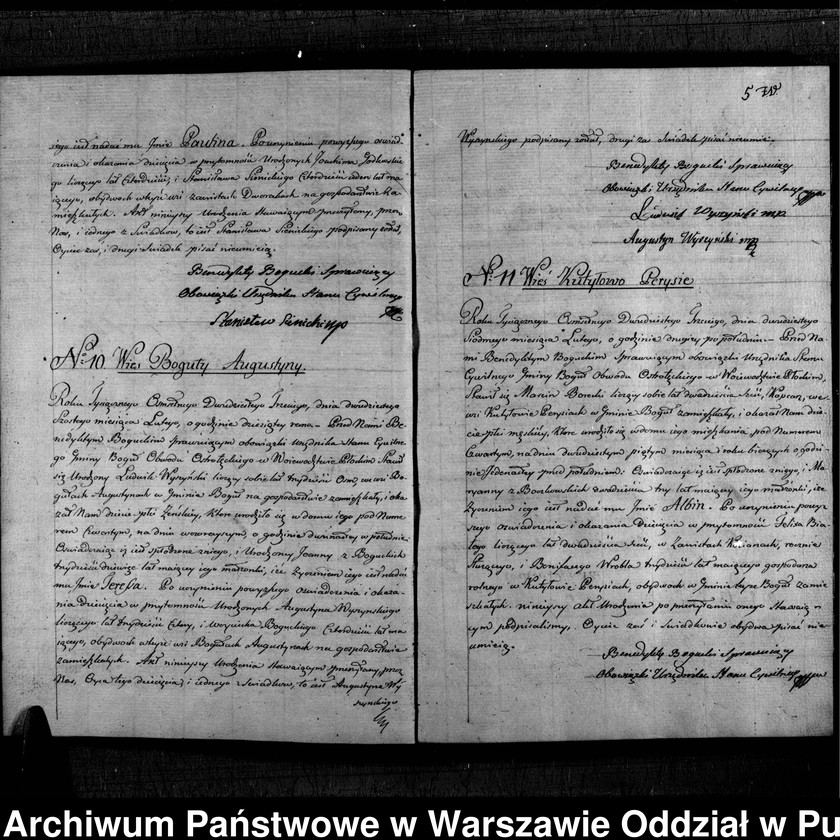 iego iest nadać ma Imie Paulina. Po uczynieniu powyższego oswiad-
czenia i okazania dziecięcia w przytomności Urodzonych Joachima Godlewskie-
go liczącego lat Czterdzieści, i Stanisława Sienickiego Czterdzieści ieden lat ma-
iącego, obydwoch w teyże wsi zawistach Dworakach na gospodarstwie za-
mieszkałych. Akt ninieyszy Urodzenia Stawaiącym przeczytany, przez
Nas, i iednego z Swiadkow, to iest Stanisława Sienickiego podpisany został,
Oyciec zaś, i drugi Swiadek pisać nieumieią.
Benedykty Bogucki Sprawuiący
Obowiązki Urzędnika Stanu Cywilnego
Stanisław Sienicki mp
No 10 Wieś Boguty Augustyny.
Roku Tysiącznego Osmsetnego Dwudziestego Trzeciego, dnia dwudziestego
Szostego miesiąca Lutego, o godzinie dziesiątey rano. Przed Nami Be-
nedyktym Boguckim sprawuiącym obowiązki Urzędnika Stanu Cywilne-
go Gminy Boguł Obwodu Ostrołęckiego w Woiewodztwie Płockim Stawił
się Urodzony Ludwik Wyszyński liczący sobie lat trzydzieści Osm, we wsi Bo-
gutach Augustynach w Gminie Boguł na gospodarstwie zamieszkały, i oka-
zał Nam dziecie płci żeńskiey, ktore urodziło się w domu iego pod Nume-
rem Czwartym, na dniu wczorayszym, o godzinie dwunastey w południe.
Oswiadczaiąc iż iest spłodzone z niego, i Urodzoney Joanny z Boguckich
trzydzieści dziewięć lat maiącey iego małżonki, i że życzeniem iego iest nadać
mu Imie Teressa. Po uczynieniu powyższego oswiadczenia i okaza-
nia Dziecięcia w przytomności Urodzonych Augustyna Wyszyńskiego
liczącego lat trzydzieści Cztery, i Woyciecha Boguckiego Czterdzieści lat ma-
iącego, obydwoch w teyże wsi Bogutach Augustynach na gospodarstwie
zamieszkałych. Akt ninieyszy Urodzenia Stawaiącym przeczytany, przez
Nas, Oyca tego dziecięcia, i iednego z Swiadkow, to iest Augustyna Wy-
szynskiego
5
Wyszynskiego podpisany został, drugi zaś Swiadek pisać nieumie.
Benedykty Bogucki Sprawuiący
Obowiązki Urzędnika Stanu Cywilnego
Ludwik Wyszyński mp
Augustyn Wyszyński mp
No 11 Wieś Kutyłowo Perysie
Roku Tysiącznego Osmsetnego Dwudziestego Trzeciego, dnia dwudziestego
Siodmego miesiąca Lutego, o godzinie drugiey po południu. Przed Na-
mi Benedyktym Boguckim Sprawuiącym obowiązki Urzędnika Stanu
Cywilnego Gminy Boguł Obwodu Ostrołęckiego w Woiewodztwie Płockim,
Stawił się Marcin Borecki liczący sobie lat dwadzieścia Kopcan, we
wsi Kutyłowie Perysiach w Gminie Boguł zamieszkały, i okazał Nam dzie-
cie płci męskiey, ktore urodziło się w domu iego mieszkania pod Numerem
Czwartym, na dniu dwudziestym piątym miesiąca i roku bieżących o godzi-
nie iedenastey przed południem: Oswiadczaiąc iż iest spłodzone z niego, i Ma-
ryanny z dwadzieścia trzy lat maiącey iego małżonki, i że
życzeniem iego iest nadać mu Imie Albin. Po uczynieniu powyż-
szego oswiadczenia i okazania Dziecięcia w przytomności Felixa Bia-
łego liczącego lat dwadzieścia w Zawistach rocznie
Służącego, i Bonifacego Wrobla trzydzieści lat maiącego gospodarza
rolnego w Kutyłowie Perysiach, obydwoch w Gminie teyże Boguł zamie-
szkałych. ninieyszy akt Urodzenia po przeczytaniu onego Stawaią-
cym podpisalismy, Oyciec zaś i Swiadkowie obydwa pisać nie-
umieią.
Benedykty Bogucki Sprawuiący
Obowiązki Urzędnika Stanu Cywilnego
Archiwum Państwowe w Warszawie Oddział w Pu